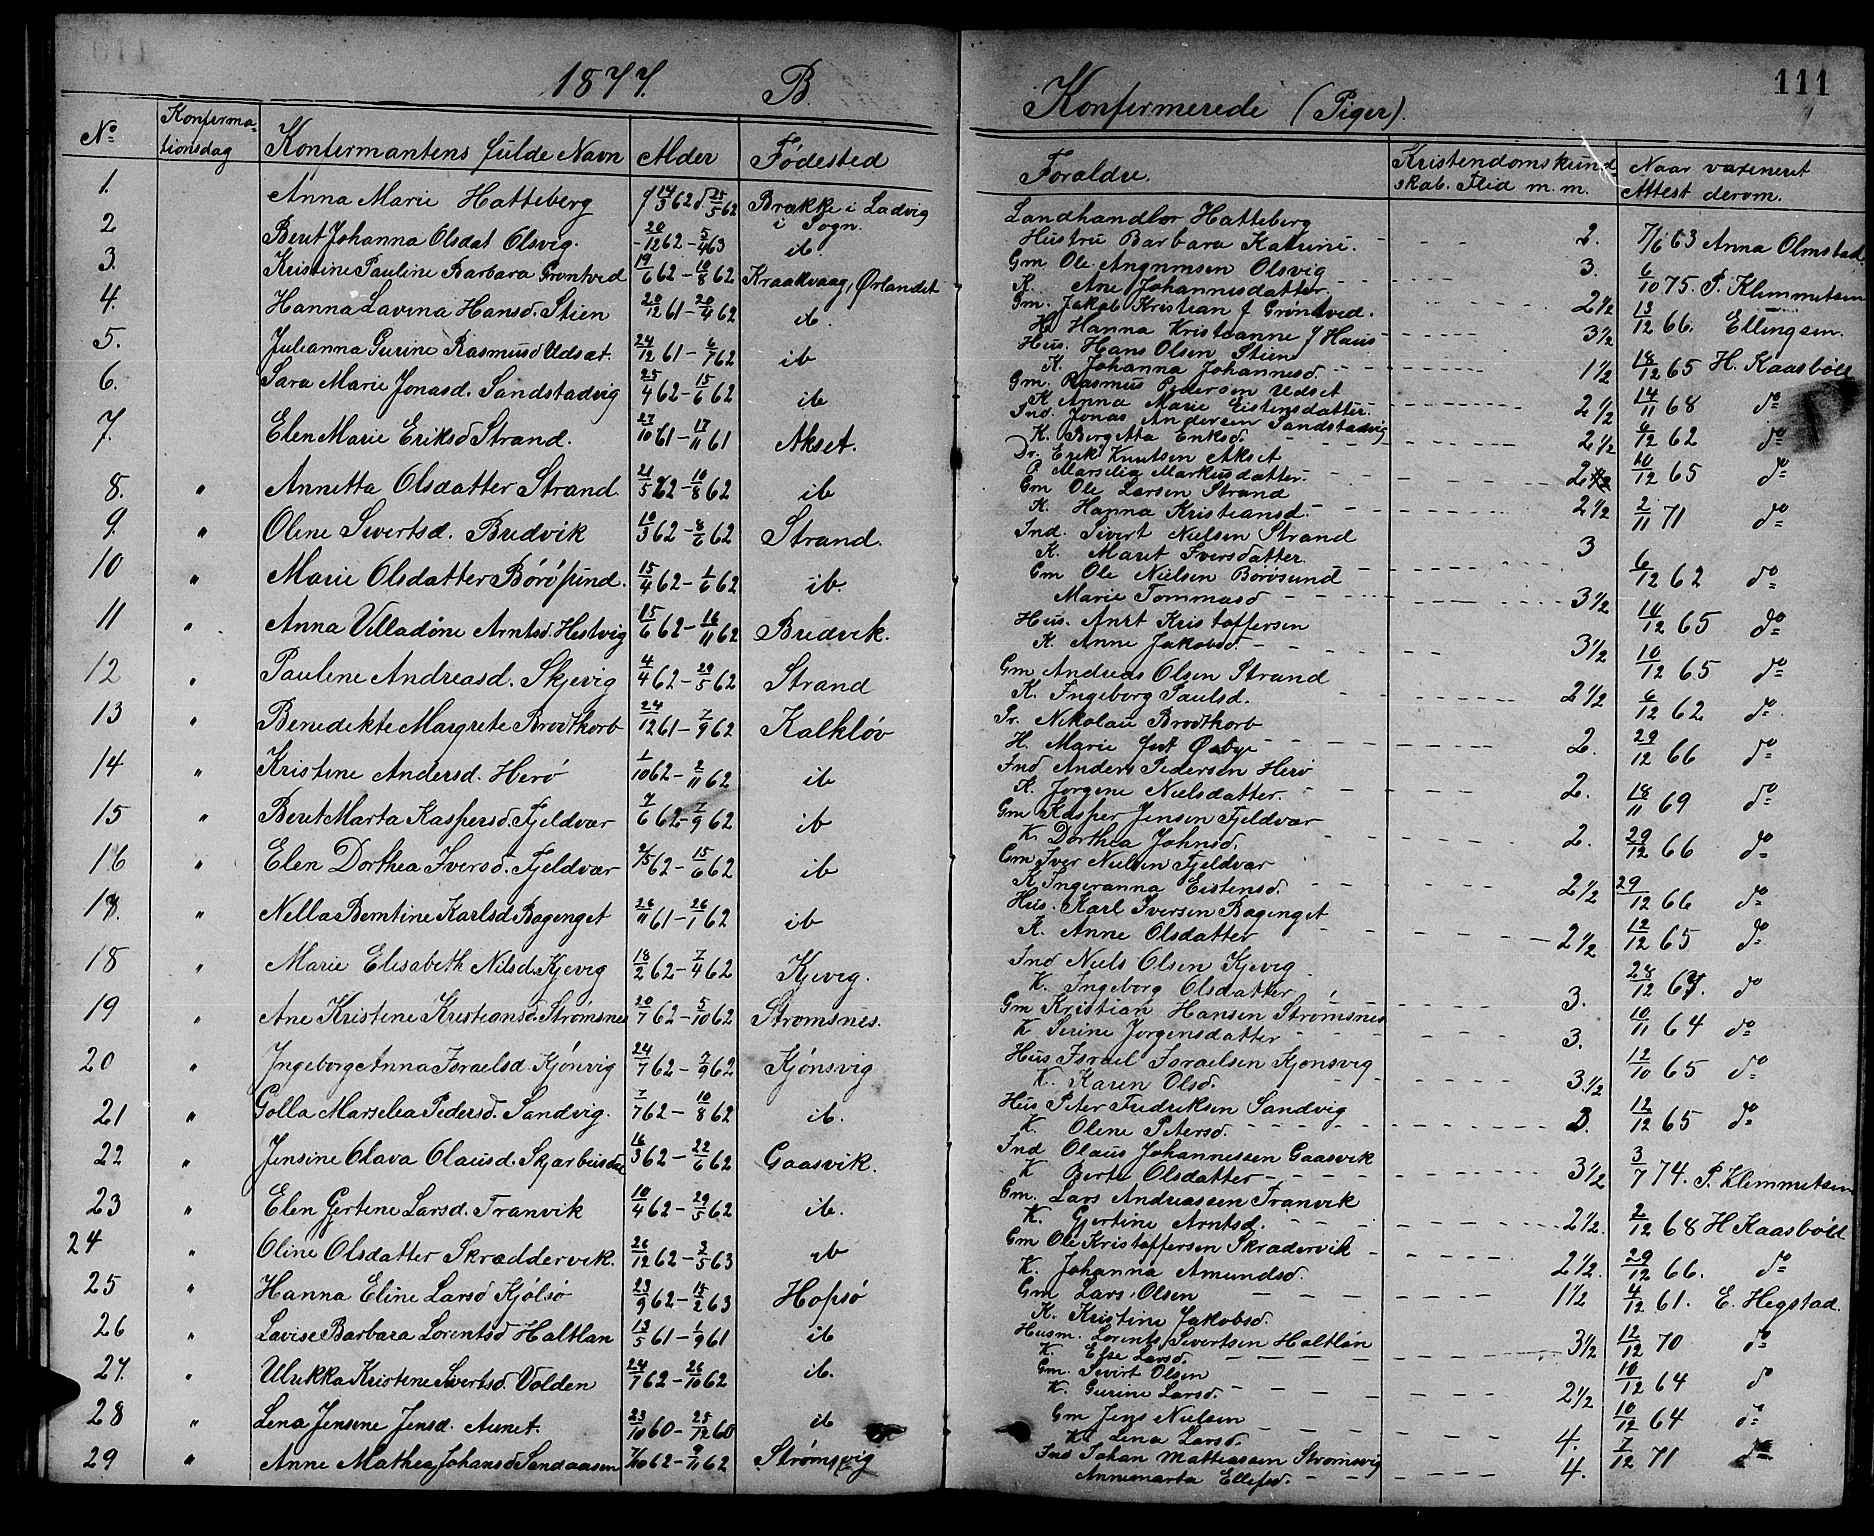 1877.
B.
Konfermerede (Piger).
111
No
Konferma-
tionsdag
Konfermantens fulde Navn
Alder
Fødested
Forældre.
Kristendomskund
skab. Flid m. m.
Naar vaxineret
Attest derom.
1. Anna Marie Hatteberg f 14/3 62 d 25/5 62 Brække i Ladvig
i Sogn.
Landhandler Hatteberg
Hustru Barbara Katrine. 2. 7/6 63 Anna Olmstad
2 Berit Johanna Olsdat Olsvig. 20/12 62 - 5/4 63 ib.
Gm Ole Olsvig
K. Ane Johannesdatter 3. 6/10 75. P. Klemmetsen
3. Kristine Pauline Barbara Grøntved 19/6 62 - 10/8 62 Kraakvaag, Ørlandet
Gm. Jakob Kristian f Grøntved.
H. Hanna Kristianne f Haus 2 1/2 13/12 66. Ellingsen.
4. Hanna Lavina Hansd. Stien 20/12 61 - 20/4 62 ib.
Hus. Hans Olsen Stien
K. Johanna Johannesd. 3 1/2 18/12 65 H. Kaasbøll
5. Julianna Gurine Rasmusd Udset. 24/12 61 - 6/7 62 ib
Gm. Rasmus Pedersen Udset
K Anna Marie Eistensdatter. 1 1/2 14/11 68 do
6. Sara Marie Jonasd. Sandstadvig 25/4 62 - 15/6 62 ib
Ind. Jonas Andersen Sandstadvig
K. Bergetta Eriksd. 2 1/2 6/12 62 do
7. Elen Marie Eriksd Strand. 27/10 61 - 17/11 61 Akset.
Dr. Erik Knutsen Akset
P Marselia Markusdatter. 2 1/2 10/12 65 do
8. " Annetta Olsdatter Strand 21/5 62 - 10/8 62 ib
Gm Ole Larsen Strand
K. Hanna Kristiansd. 2 1/2 2/11 71 do
9. " Oline Sivertsd. Bredvik 10/3 62 - 8/6 62 Strand.
Ind. Sivert Nielsen Strand
K. Marit Iversdatter 3 6/12 62 do
10 " Marie Olsdatter Börösund. 15/4 62 - 1/6 62 ib.
Gm Ole Nielsen Börösund
Marie Tommasd 3 1/2 10/12 65 do
11 " Anna Villadöne Arntsd. Hestvig 15/6 62 - 16/11 62 Bredvik.
Hus. Arnt Kristoffersen
K. Anne Jakobsd. 3 1/2 10/12 65 do
12 " Pauline Andreasd. Skjevig 4/4 62 - 29/5 62 Strand
Gm Andreas Olsen Strand
K. Ingeborg Paulsd. 2 1/2 6/12 62 do
13 " Benedikte Margrete Brodtkorb 24/12 61 - 7/9 62 Kalkløv
Pr. Nikolai Brodtkorb
H. Marie født Øsbye 2. 29/12 66 do
14 " Kristine Andersd. Herö 1/10 62 - 2/11 62 ib
Ind Anders Pedersen Herö
K. Jörgene Nielsdatter. 2. 18/11 69 do
15 " Berit Marta Kaspersd. Fjeldvær 7/6 62 - 7/9 62 ib
Gm Kasper Jensen Fjeldvær
K. Dorthea Johnsd. 2. 29/12 66 do
16 " Elen Dorthea Iversd. Fjeldvær 2/5 62 - 15/6 62 ib
Gm Iver Nielsen Fjeldvær
K. Ingeranna Eistensd. 2 1/2 29/12 66 do
17. " Nella Berntine Karlsd Bagenget 26/11 61 - 26/1 62 ib
Hus. Karl Iversen Bagenget
K. Anne Olsdatter 2 1/2 12/12 65 do
18 " Marie Elisabeth Nilsd. Kjevig 18/2 62 - 7/4 62 Kjevig.
Ind Niels Olsen Kjevig
K. Ingeborg Olsdatter 3. 28/12 67. do
19 " Ane Kristine Kristiansd. Strømsnes 20/7 62 - 5/10 62 Strømsnes.
Gm Kristian Hansen Strømsnes
K Serine Jørgensdatter 3. 10/11 64 do
20 " Ingeborg Anna Israelsd. Kjönsvig 24/7 62 - 7/9 62 Kjönsvig
Hus Israel Israelsen Kjønsvig
K. Karen Olsd. 3 1/2 12/10 65 do
21 " Golla Marselea Pedersd. Sandvig. 7/7 62 - 10/8 62 ib.
Hus Peter Fredriksen Sandvig
K. Olene Petersd. 3. 12/12 65 do
22 " Jensine Olava Olausd. 16/3 62 - 22/6 62 Gaasvik.
Ind Olaus Johannessen Gaasvik
K Berte Olsdatter 3 1/2 3/7 74. P. Klemmetsen
23 " Elen Gjertine Larsd. Tranvik 10/4 62 - 29/5 62 ib.
Gm. Lars Andreassen Tranvik
K. Gjertine Arntsd. 2 1/2. 2/12 68 H Kaasbøll
24 " Oline Olsdatter Skræddervik. 26/12 62 - 3/5 63 ib
Gm Ole Kristoffersen Skrædervik
K. Johanna Amundsd. 2 1/2. 29/12 66. do
25 " Hanna Eline Larsd Kjölsö 23/9 62 - 15/2 63 Hopsö
Gm Lars Olsen
K. Kristine Jakobsd. 1 1/2 4/12 61. E. Hegstad.
26 " Lavise Barbara Lorentsd Haltlan 13/5 61 - 1/9 61 ib
Husm. Lorents Sivertsen Haltlan
K. Else Larsd. 3 1/2 12/12 70 do
27. " Ulrikka Kristine Sivertsd. Volden 24/7 62 - 26/10 62 ib.
Gm. Sivert Olsen
K. Gurine Larsd. 2 1/2 10/12 64 do
28 " Lena Jensine Jensd. Aunet. 23/10 60 - 25/12 60 ib
Gm Jens Nielsen
K. Lena Larsd. 4. 10/12 64 do
29 " Anne Mathea Johansd Sandaasen 7/10 62 - 9/11 62 Strømsvig
Ind Johan Mattiassen Strømsvig
Annemarta Ellefsd. 4. 7/12 71 do